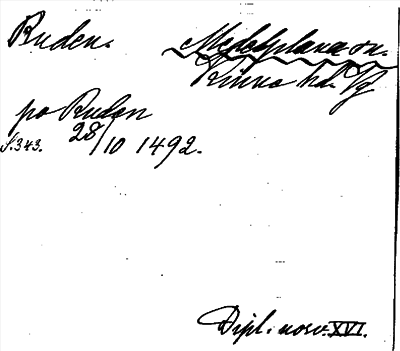 Ruden.
Medelplana sn.
Kinne hd. Vg
po Ruden
S. 343. 28/10 1492.
Dipl. norv. XVI.